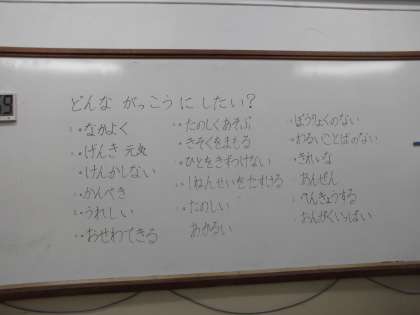 どんな がっこう に したい?
・なかよく
・げんき 元気
・けんかしない
・かんぺき
・うれしい
・おせわできる
・たのしくあそぶ
・きそくをまもる
・ひとをきずつけない
・1ねんせいをたすける
・たのしい
あかるい
・ぼうりょくのない
・わるいことばのない
・きれいな
あんぜん
・べんきょうする
・おんがくいっぱい